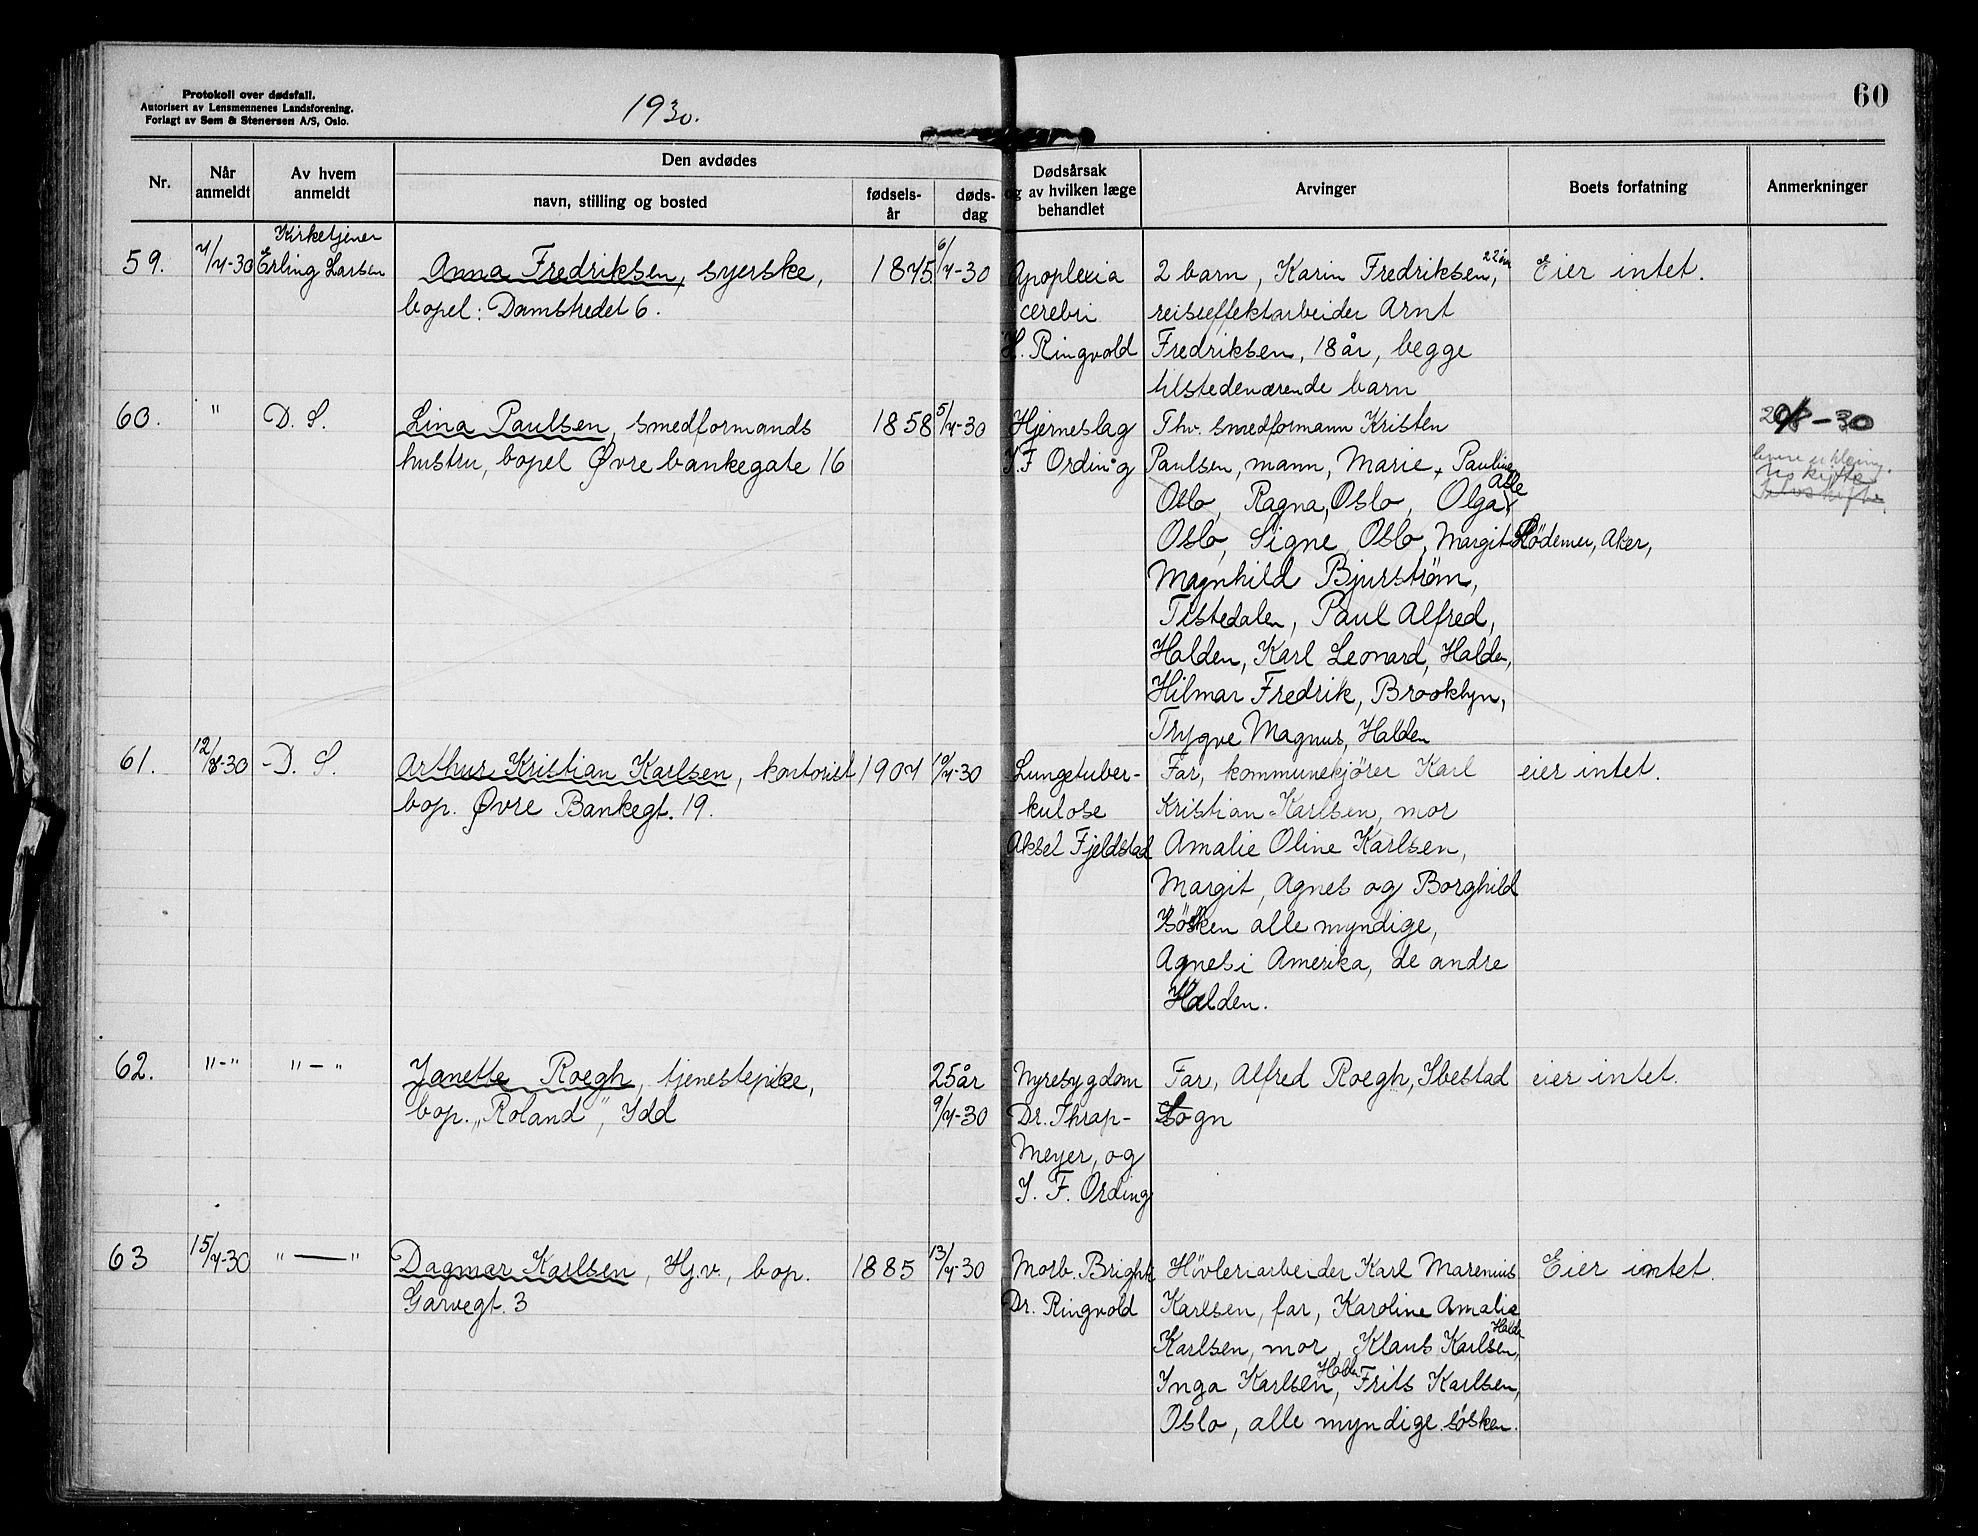 Protokoll over dødsfall.
Autorisert av Lensmennenes Landsforening.
Forlagt av Sem & Stenersen A/S, Oslo.
1930.
60
Nr.
Når anmeldt
Av hvem anmeldt
Den avdødes
navn, stilling og bosted
fødselsår
dødsdag
Dødsårsak og av hvilken læge behandlet
Arvinger
Boets forfatning
Anmerkninger
59.
7/7-30
Kirketjener
Erling Larsen
Anna Fredriksen, syerske,
bopel: Damstredet 6.
1875
6/7-30
Apoplexia
cerebri
H. Ringvold
2 barn, Karin Fredriksen, 22 år,
reiseeffektarbeider Arnt
Fredriksen, 18 år, begge
tilstedeværende barn
Eier intet.
60.
"
D. S.
Lina Paulsen, smedformands
hustru, bopel Øvre bankegate 16
1858
5/7-30
Hjerneslag
J. F Ording
Thv. smedformann Kristen
Paulsen, mann, Marie, Pauline
Oslo, Ragna, Oslo, Olga
Oslo, Signe Oslo, Margit Rødemer, Aker,
Magnhild Bjurstrøm,
Tistedalen, Paul Alfred,
Halden, Karl Leonard, Halden,
Hilmar Fredrik, Brooklyn,
Trygve Magnus, Halden
29/8-30
61.
12/8-30
D. S.
Arthur Kristian Karlsen, kontorist
bop. Øvre Bankegt. 19.
1907
10/7-30
Lungetuber-
kulose
Aksel Fjeldstad
Far, kommunekjører Karl
Kristian Karlsen, mor
Amalie Oline Karlsen,
Margit, Agnes og Borghild
søsken alle myndige,
Agnes i Amerika, de andre
Halden.
eier intet.
62.
"-"
"-"
Janette Roegh, tjenestepike,
bop. „Roland", Idd
25 år
9/7-30
Nyresygdom
Dr. Thrap-
Meyer, og
J. F. Ording
Far, Alfred Roegh, Ibestad
Sogn
eier intet.
63
15/7-30
"—"
Dagmar Karlsen, Hj.v., bop.
Garvegt. 3
1885
13/7-30
Morb. Brighti
Dr. Ringvold
Høvleriarbeider Karl Marenius
Karlsen, far, Karoline Amalie
Karlsen, mor, Klaus Karlsen, Halden
Inga Karlsen, Halden, Frits Karlsen,
Oslo, alle myndige søsken.
Eier intet.